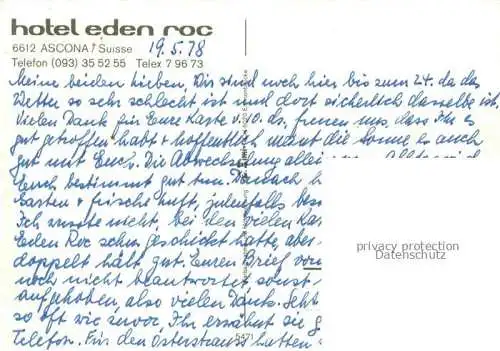 hotel eden roc
6612 ASCONA / Suisse 19.5.78
Telefon (093) 35 52 55 Telex 7 96 73
Meine beiden Lieben, Wir sind noch hier bis zum 24. da das
Wetter so sehr schlecht ist und dort sicherlich dasselbe ist
Vielen Dank für Eure Karte v. 10. ds. freuen uns, dass Ihr es
gut getroffen habt + hoffentlich meint die Sonne es auch
gut mit Euch. Die Abwechslung allei
Euch bestimmt gut tun. Danach
Garten + frische Luft, jedenfalls bess
Ich wusste nicht, bei den vielen Kar
Eden Roc schon geschickt hatte, aber
doppelt hält gut. Euren Brief vom
noch nicht beantwortet sonst
aufgehoben, also vielen Dank. Seht
so oft wie zuvor, Ihr erwähnt sie g
Telefon. Für den Osterstrauss hatten
privacy protection
Datenschutz
5471